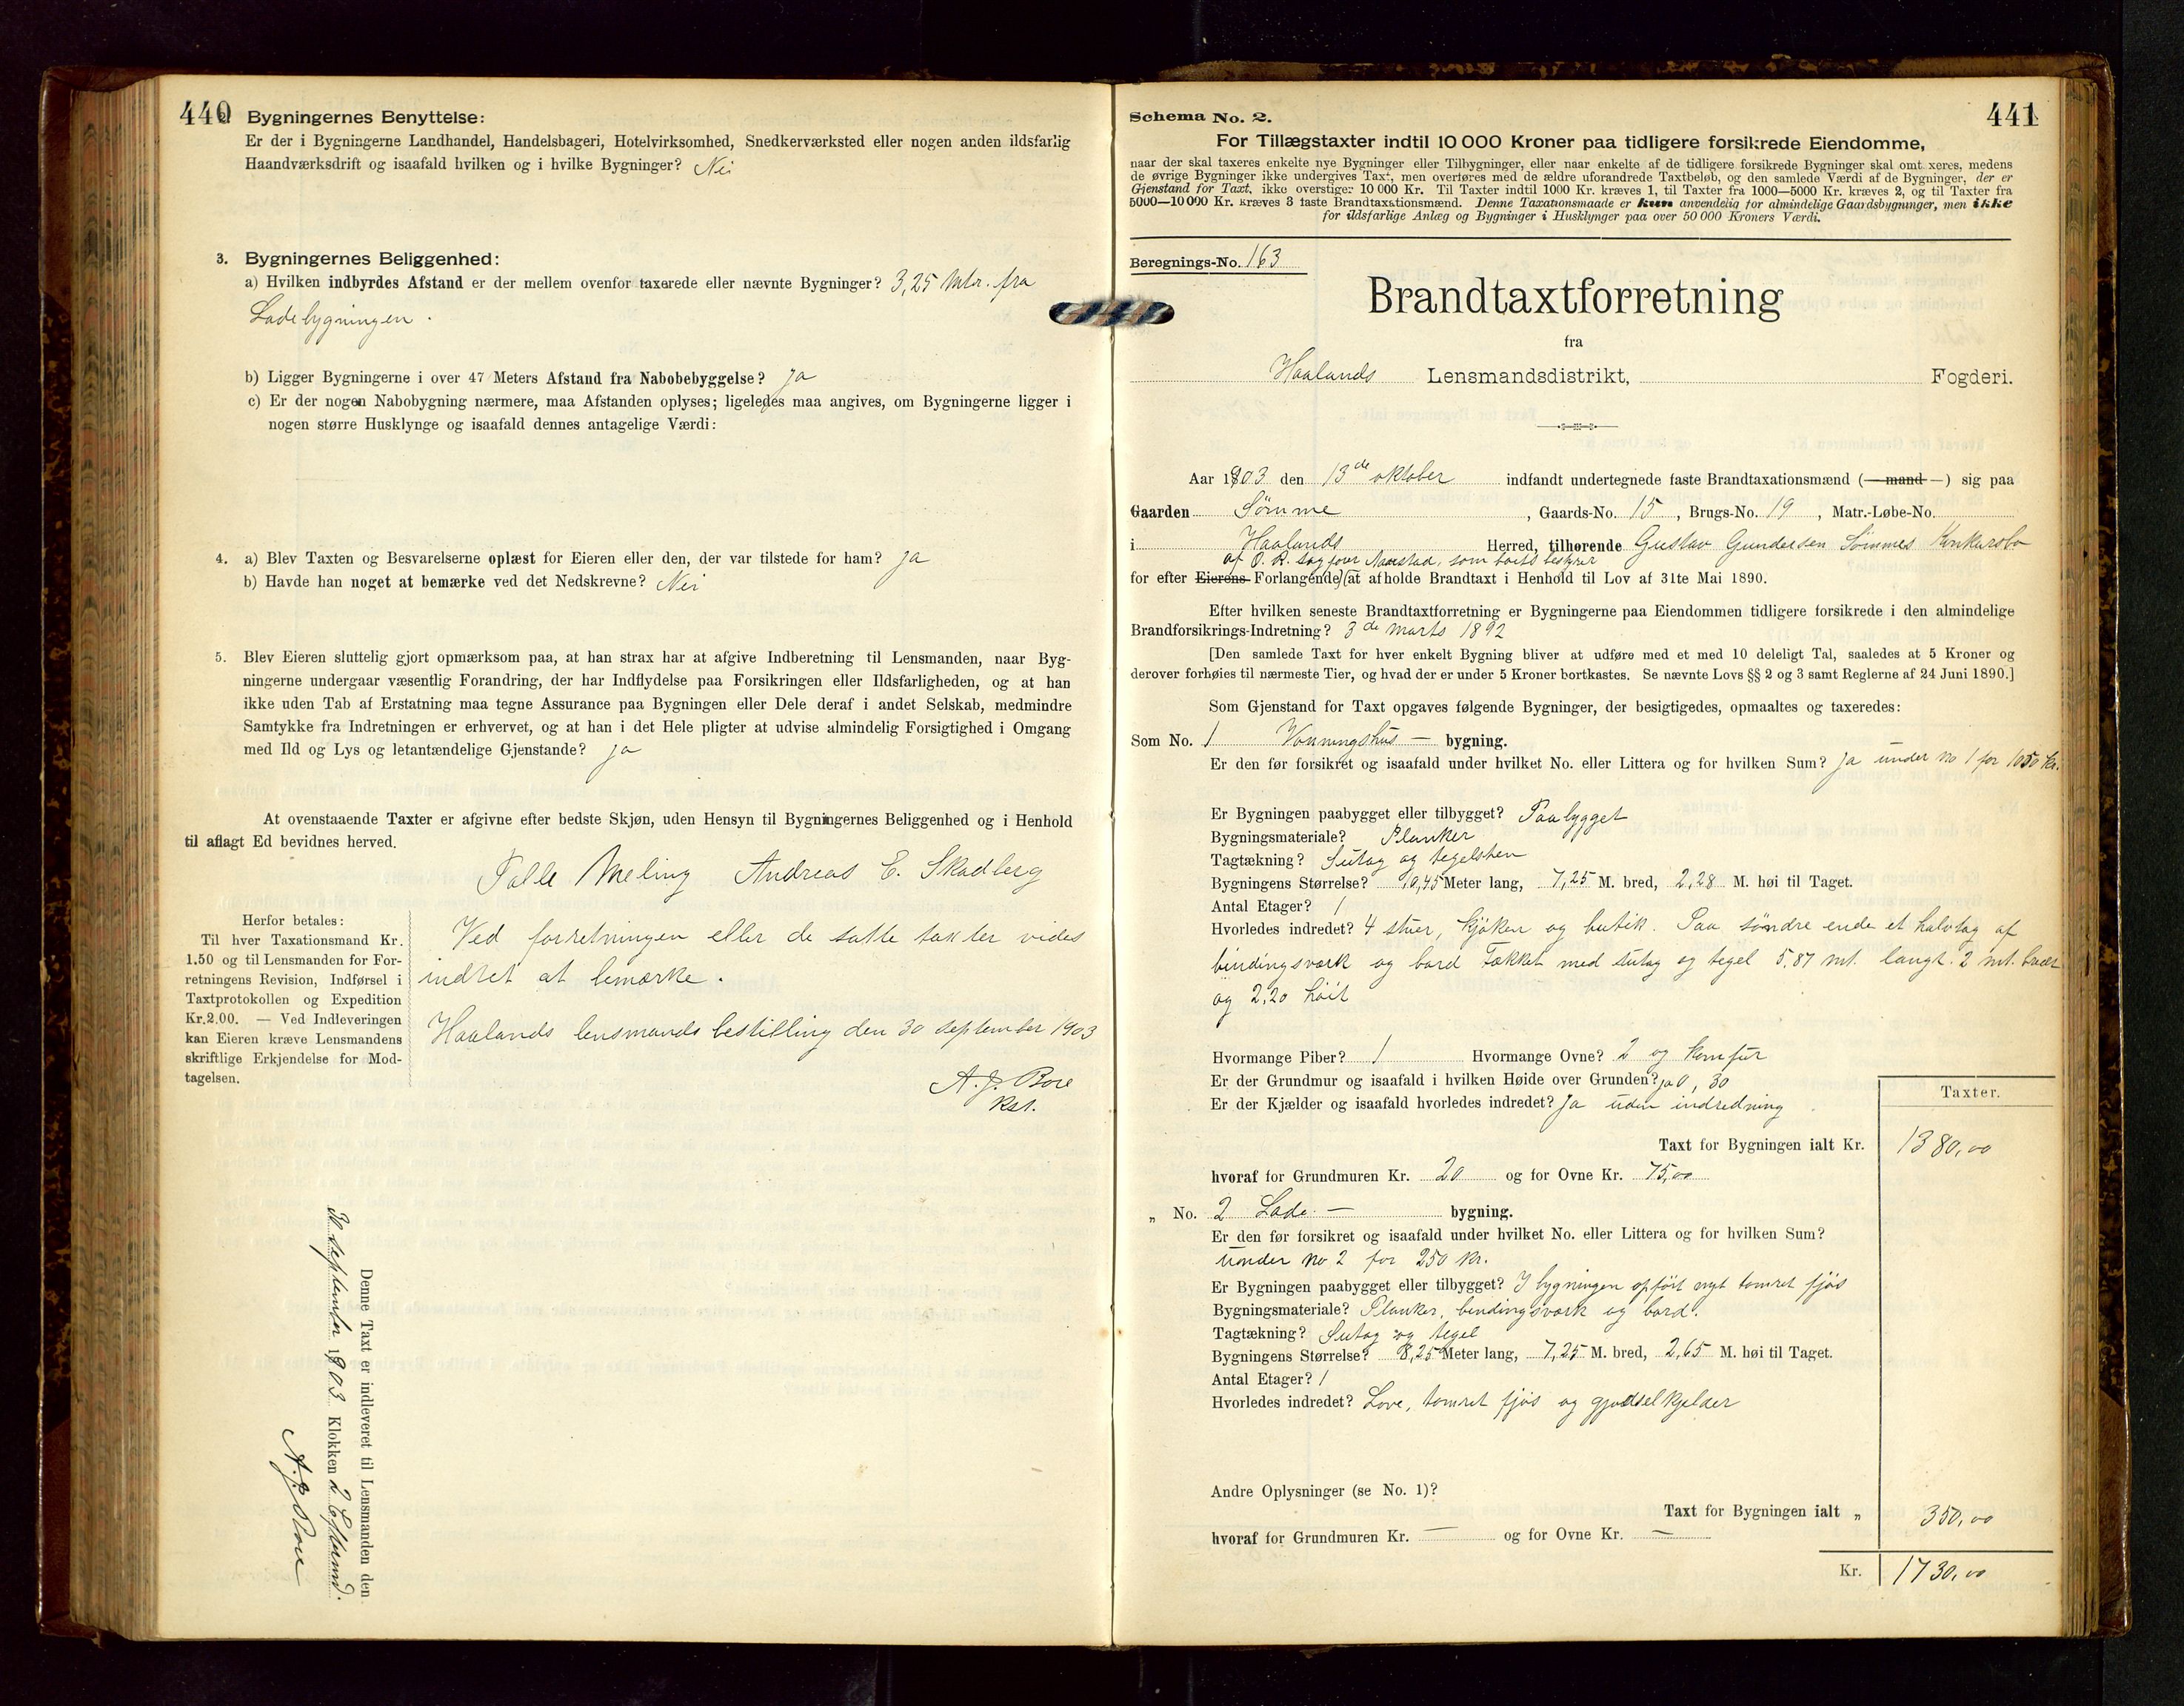 440
2. Bygningernes Benyttelse:
Er der i Bygningerne Landhandel, Handelsbageri, Hotelvirksomhed, Snedkerværksted eller nogen anden ildsfarlig
Haandværksdrift og isaafald hvilken og i hvilke Bygninger? Nei
3. Bygningernes Beliggenhed:
a) Hvilken indbyrdes Afstand er der mellem ovenfor taxerede eller nævnte Bygninger? 3,25 Mtr. fra
Ladebygningen.
b) Ligger Bygningerne i over 47 Meters Afstand fra Nabobebyggelse? Ja
c) Er der nogen Nabobygning nærmere, maa Afstanden oplyses; ligeledes maa angives, om Bygningerne ligger i
nogen større Husklynge og isaafald dennes antagelige Værdi:
4. a) Blev Taxten og Besvarelserne oplæst for Eieren eller den, der var tilstede for ham? Ja
b) Havde han noget at bemærke ved det Nedskrevne? Nei
5. Blev Eieren sluttelig gjort opmærksom paa, at han strax har at afgive Indberetning til Lensmanden, naar Byg-
ningerne undergaar væsentlig Forandring, der har Indflydelse paa Forsikringen eller Ildsfarligheden, og at han
ikke uden Tab af Erstatning maa tegne Assurance paa Bygningen eller Dele deraf i andet Selskab, medmindre
Samtykke fra Indretningen er erhvervet, og at han i det Hele pligter at udvise almindelig Forsigtighed i Omgang
med Ild og Lys og letantændelige Gjenstande? Ja
At ovenstaaende Taxter er afgivne efter bedste Skjøn, uden Hensyn til Bygningernes Beliggenhed og i Henhold
til aflagt Ed bevidnes herved.
Palle Meling Andreas E. Skadberg
Herfor betales:
Til hver Taxationsmand Kr.
1.50 og til Lensmanden for For-
retningens Revision, Indførsel i
Taxtprotokollen og Expedition
Kr.2.00. — Ved Indleveringen
kan Eieren kræve Lensmandens
skriftlige Erkjendelse for Mod-
tagelsen.
Ved forretningen eller de satte takster vides
indtet at bemærke.
Haalands lensmandsbestilling den 30 september 1903
A. J. Bore
Kst.
Denne Taxt er indleveret til Lensmanden den
30 september 1903 Klokken 2 Efterm.
A. J. Bore
441
Schema No. 2.
For Tillægstaxter indtil 10 000 Kroner paa tidligere forsikrede Eiendomme,
naar der skal taxeres enkelte nye Bygninger eller Tilbygninger, eller naar enkelte af de tidligere forsikrede Bygninger skal omt xeres, medens
de øvrige Bygninger ikke undergives Taxt, men overføres med de ældre uforandrede Taxtbeløb, og den samlede Værdi af de Bygninger, der er
Gjenstand for Taxt, ikke overstiger 10 000 Kr. Til Taxter indtil 1000 Kr. kræves 1, til Taxter fra 1000—5000 Kr. kræves 2, og til Taxter fra
5000—10 000 Kr. kræves 3 faste Brandtaxationsmænd. Denne Taxationsmaade er kun anvendelig for almindelige Gaardsbygninger, men ikke
for ildsfarlige Anlæg og Bygninger i Husklynger paa over 50 000 Kroners Værdi.
Beregnings-No. 163
Brandtaxtforretning
fra
Haalands Lensmandsdistrikt, Fogderi.
Aar 1903 den 13de oktober indfandt undertegnede faste Brandtaxationsmænd (—mand—) sig paa
Gaarden Sømme, Gaards-No. 15, Brugs-No. 19, Matr.-Løbe-No.
i Haalands Herred, tilhørende Gustav Gundersen Sømmes Konkursbo
af O. R. sagfører Aarstad, som boets bestyrer
for efter Eierens Forlangende at afholde Brandtaxt i Henhold til Lov af 31te Mai 1890.
Efter hvilken seneste Brandtaxtforretning er Bygningerne paa Eiendommen tidligere forsikrede i den almindelige
Brandforsikrings-Indretning? 3de marts 1892
[Den samlede Taxt for hver enkelt Bygning bliver at udføre med et med 10 deleligt Tal, saaledes at 5 Kroner og
derover forhøies til nærmeste Tier, og hvad der er under 5 Kroner bortkastes. Se nævnte Lovs §§ 2 og 3 samt Reglerne af 24 Juni 1890.]
Som Gjenstand for Taxt opgaves følgende Bygninger, der besigtigedes, opmaaltes og taxeredes:
Som No. 1 Vonningshus — bygning.
Er den før forsikret og isaafald under hvilket No. eller Littera og for hvilken Sum? Ja under no 1 for 1050 kr.
Er Bygningen paabygget eller tilbygget? Paabygget
Bygningsmateriale? Planker
Tagtækning? Sutag og tegelsten
Bygningens Størrelse? 10,45 Meter lang, 7,25 M. bred, 2,28 M. høi til Taget.
Antal Etager? 1
Hvorledes indredet? 4 stuer, kjøken og butik. Paa søndre ende et halvtag af
bindingsværk og bord tækket med sutag og tegel 5,87 mt. langt. 2 mt. bredt
og 2,20 høit
Hvormange Piber? 1 Hvormange Ovne? 2 og komfur
Er der Grundmur og isaafald i hvilken Høide over Grunden? ja 0,30
Er der Kjælder og isaafald hvorledes indredet? Ja uden indredning
Taxter.
Taxt for Bygningen ialt Kr. 1380,00
hvoraf for Grundmuren Kr. 20 og for Ovne Kr. 75,00
„ No. 2 Lade — bygning.
Er den før forsikret og isaafald under hvilket No. eller Littera og for hvilken Sum?
under no 2 for 250 kr.
Er Bygningen paabygget eller tilbygget? I bygningen opført nyt tømret fjøs
Bygningsmateriale? Planker, bindingsværk og bord.
Tagtækning? Sutag og tegel
Bygningens Størrelse? 8,25 Meter lang, 7,25 M. bred, 2,65 M. høi til Taget.
Antal Etager? 1
Hvorledes indredet? Love, tømret fjøs og gjødselkjelder
Andre Oplysninger (se No. 1)?
Taxt for Bygningen ialt „ 350,00
hvoraf for Grundmuren Kr. — og for Ovne Kr. —
Kr. 1730,00